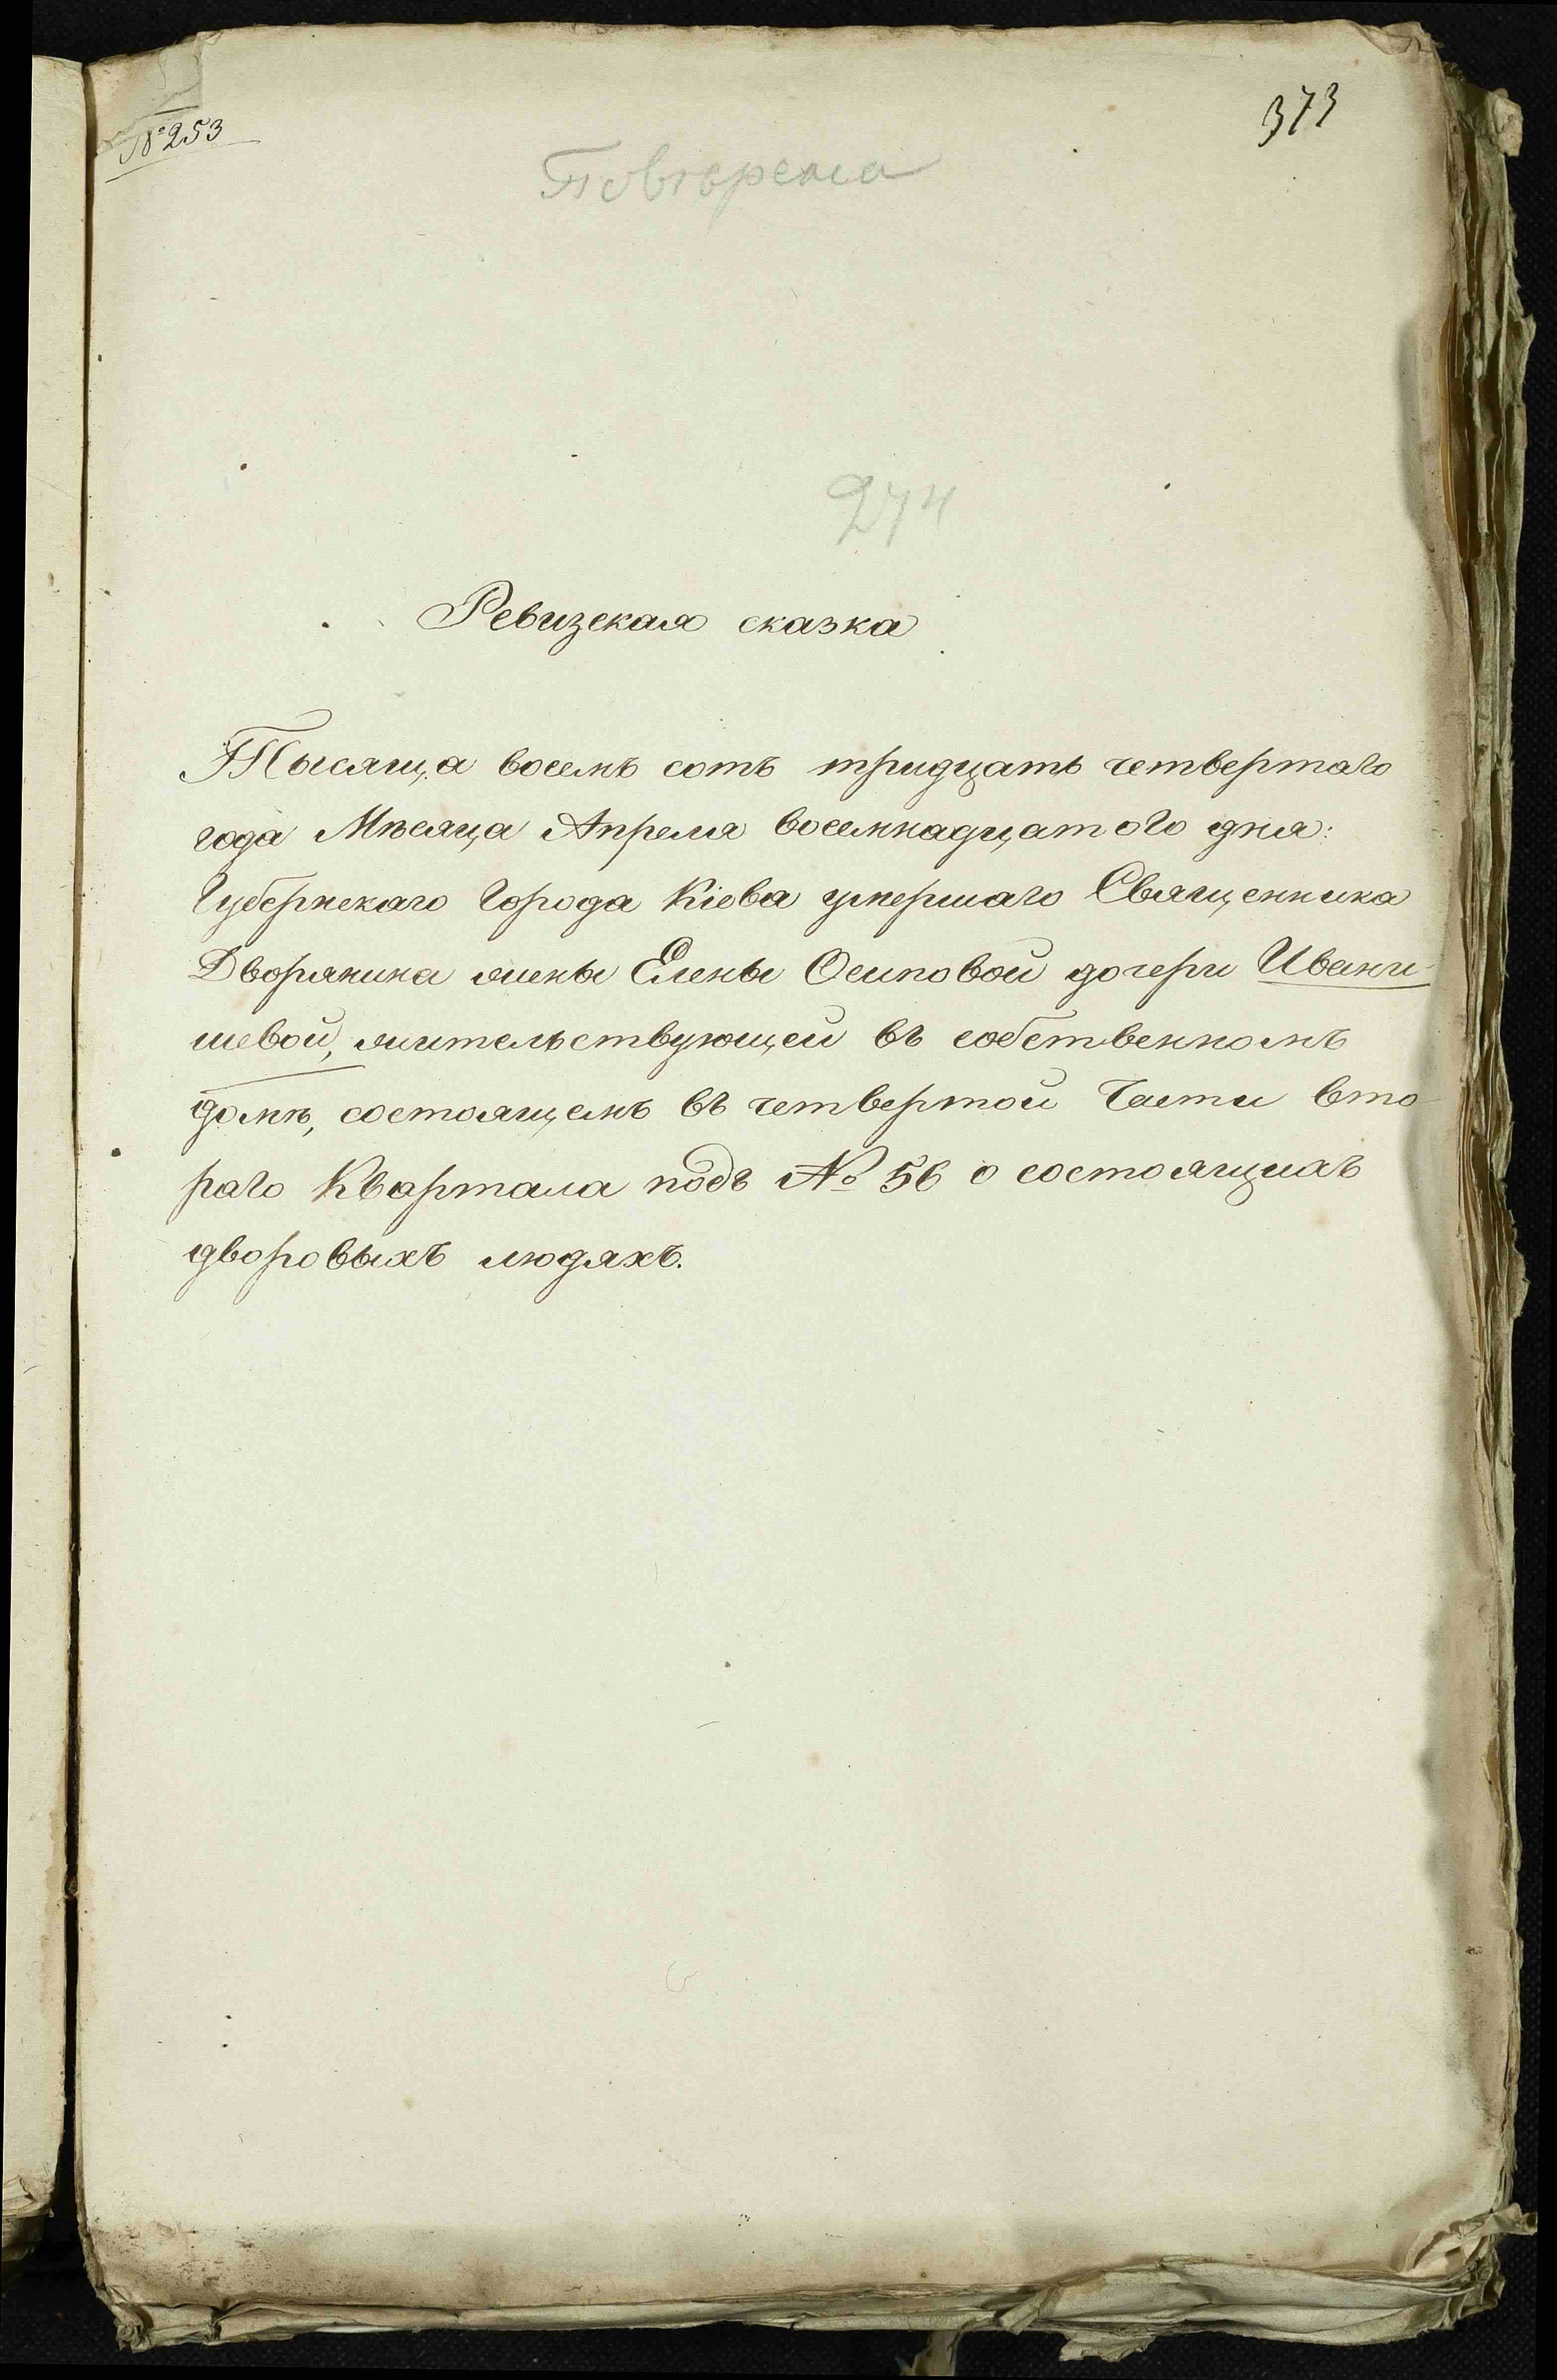 № 253
373
Повѣрена
274
Ревизская сказка
Тысяща восемь сотъ тридцать четвертаго
года Мѣсяца Апреля восемнадцатого дня:
Губернскаго Города Кіева умершаго Священника
Дворянина жены Елены Осиповой дочери Ивани-
шевой, жительствующей въ собственномъ
домѣ, состоящемъ въ четвертой Части вто-
раго Квартала подъ № 56 о состоящихъ
дворовыхъ людяхъ.